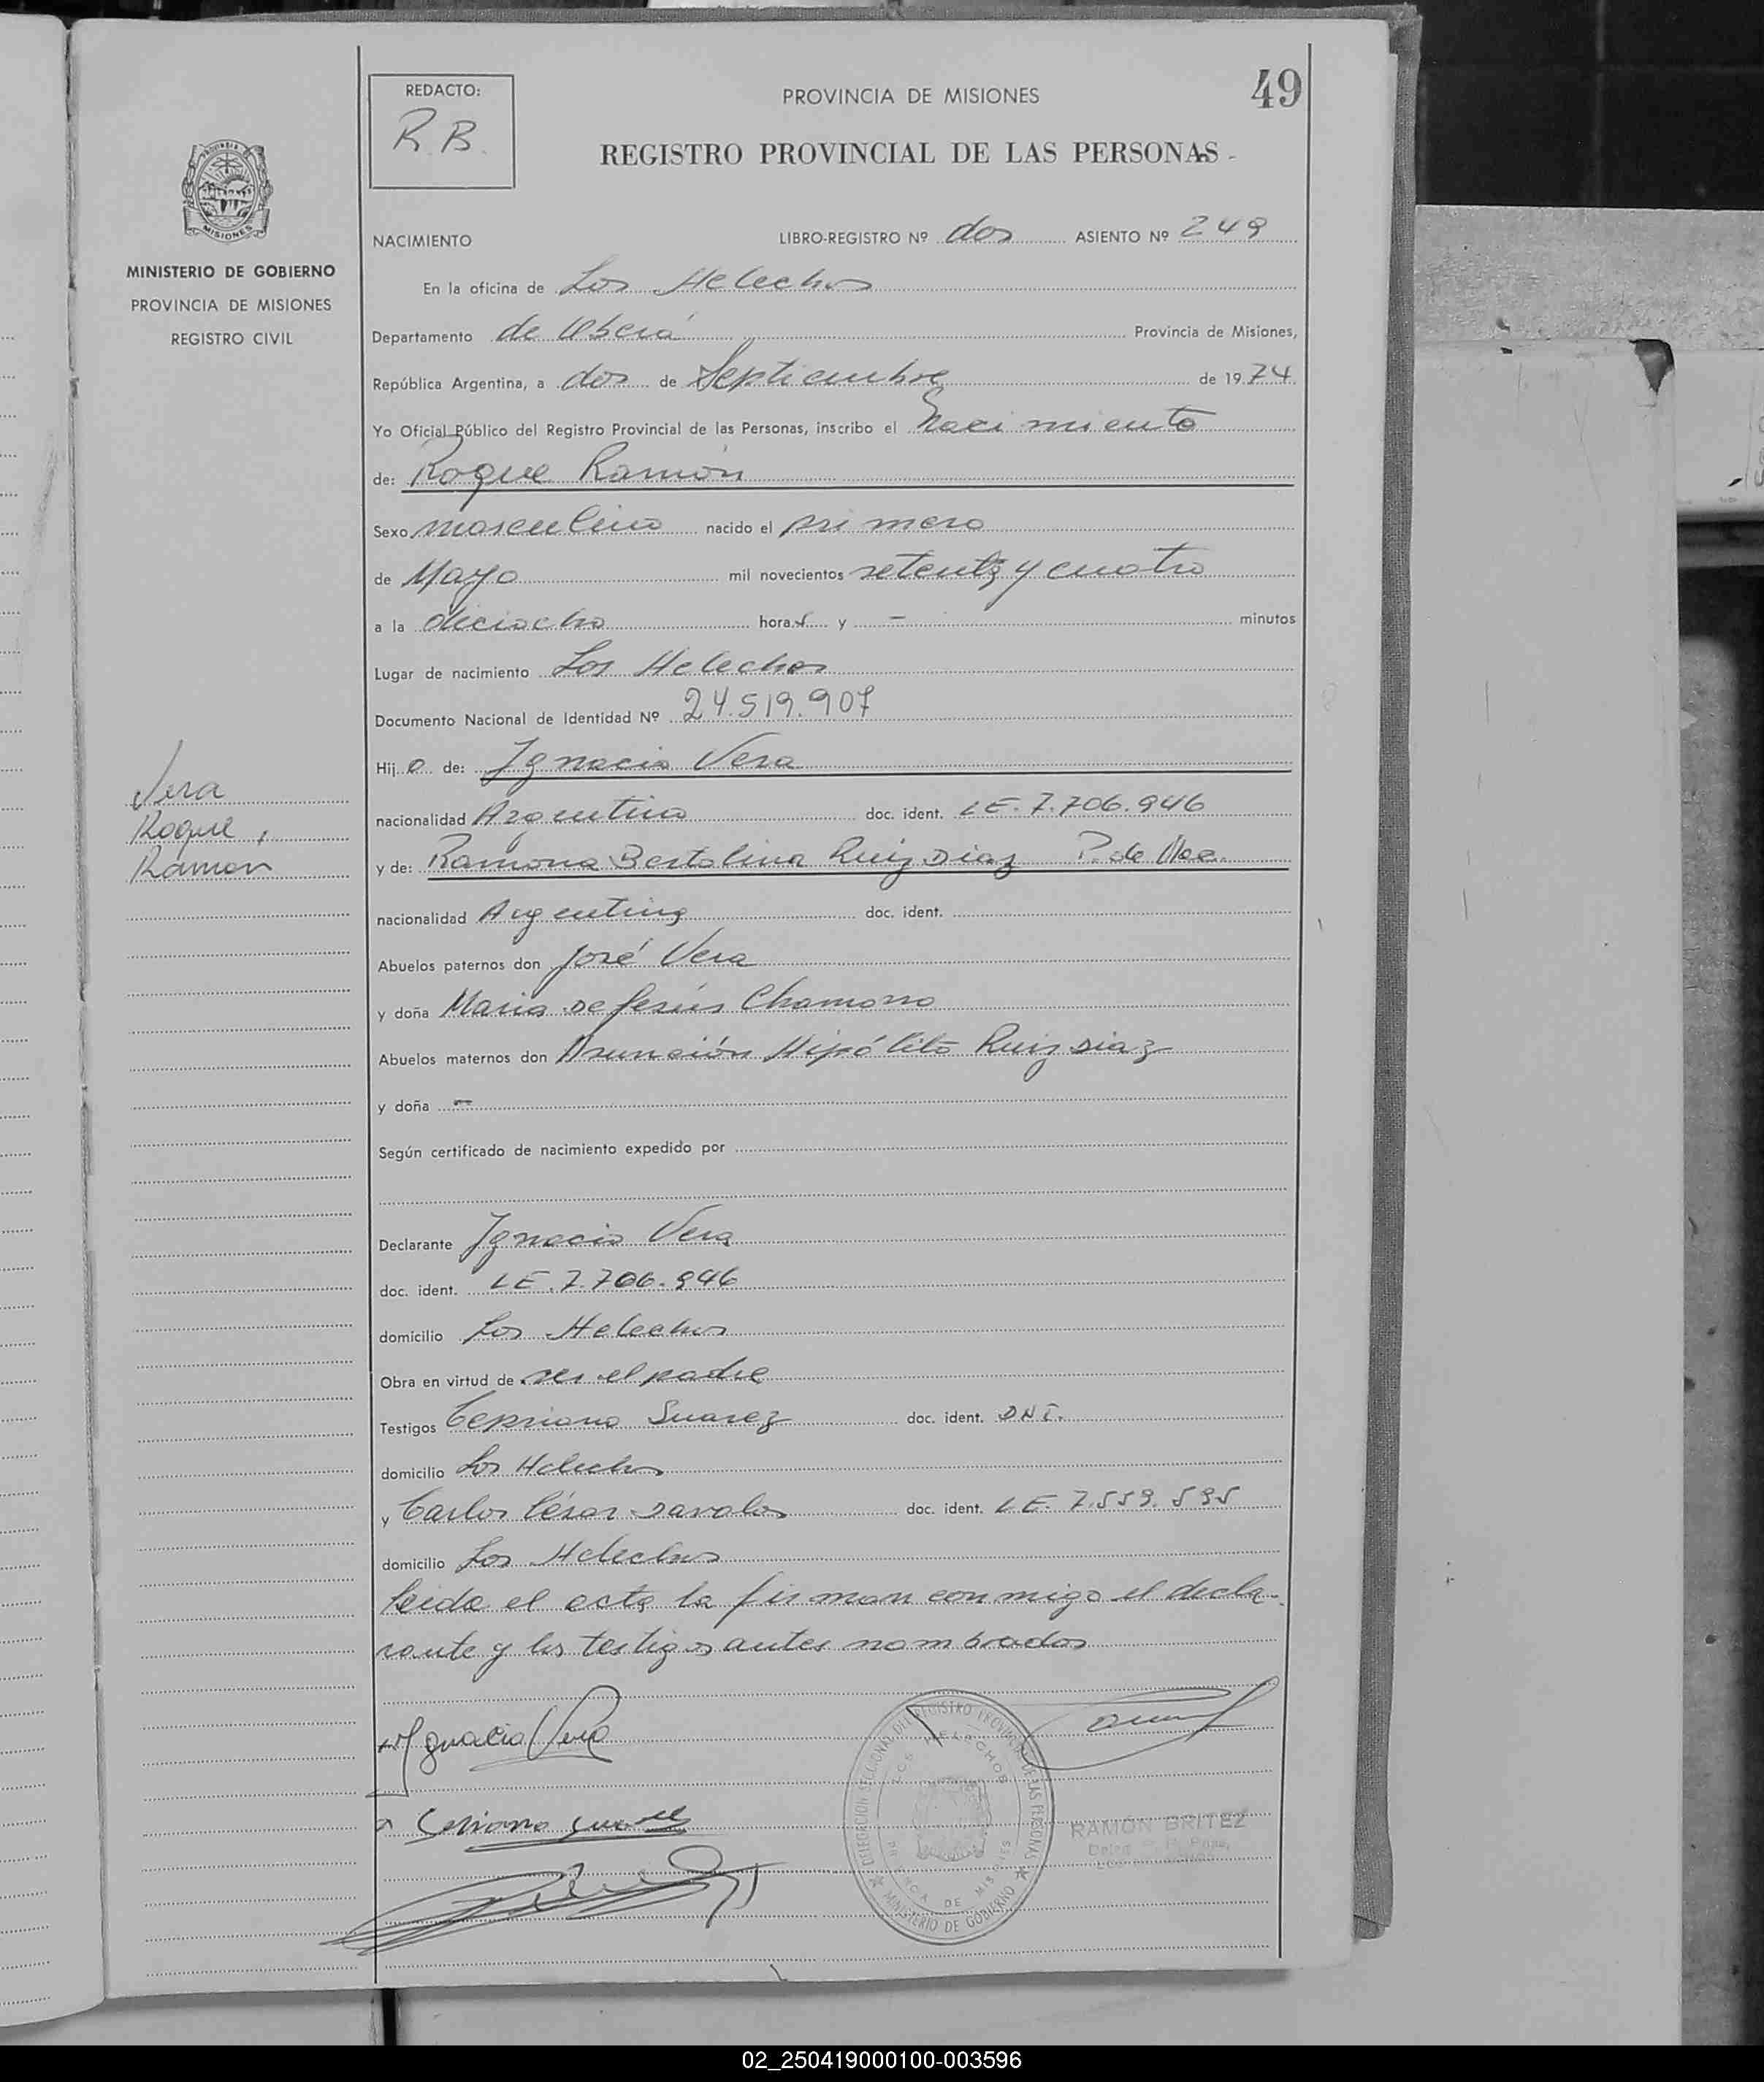 49
REDACTO:
R.B.
PROVINCIA DE MISIONES
REGISTRO PROVINCIAL DE LAS PERSONAS
MISIONES
MINISTERIO DE GOBIERNO
PROVINCIA DE MISIONES
REGISTRO CIVIL
NACIMIENTO LIBRO-REGISTRO Nº dos ASIENTO Nº 249
En la oficina de Los Helechos
Departamento de Oberá Provincia de Misiones,
República Argentina, a dos de Septiembre de 1974.
Yo Oficial Público del Registro Provincial de las Personas, inscribo el Nacimiento
de: Roque Ramón
Sexo masculino nacido el primero
de Mayo mil novecientos setenta y cuatro
a la dieciocho horas y - minutos
Lugar de nacimiento Los Helechos
Documento Nacional de Identidad Nº 24.519.907
Hijo de: Ignacio Vera
nacionalidad Argentino doc. ident. LE. 7.706.946
y de: Ramona Bertolina Ruiz Diaz
nacionalidad Argentina doc. ident.
Abuelos paternos don José Vera
y doña Maria de Jesús Chamorro
Abuelos maternos don Asunción Hipólito Ruiz Diaz
y doña -
Según certificado de nacimiento expedido por
Declarante Ignacio Vera
doc. ident. LE. 7.706.946
domicilio Los Helechos
Obra en virtud de ser el padre
Testigos Cepriano Suarez doc. ident. DNI.
domicilio Los Helechos
y Carlos César Davalos doc. ident. LE. 7.559.595
domicilio Los Helechos
leida el acta la firman conmigo el decla-
rante y los testigos antes nombrados
Vera
Roque,
Ramon
Ignacio Vera
DELEGACION SECCIONAL DEL REGISTRO PROVINCIAL DE LAS PERSONAS
LOS HELECHOS
PROVINCIA DE MISIONES
MINISTERIO DE GOBIERNO
RAMÓN BRITEZ
02_250419000100-003596